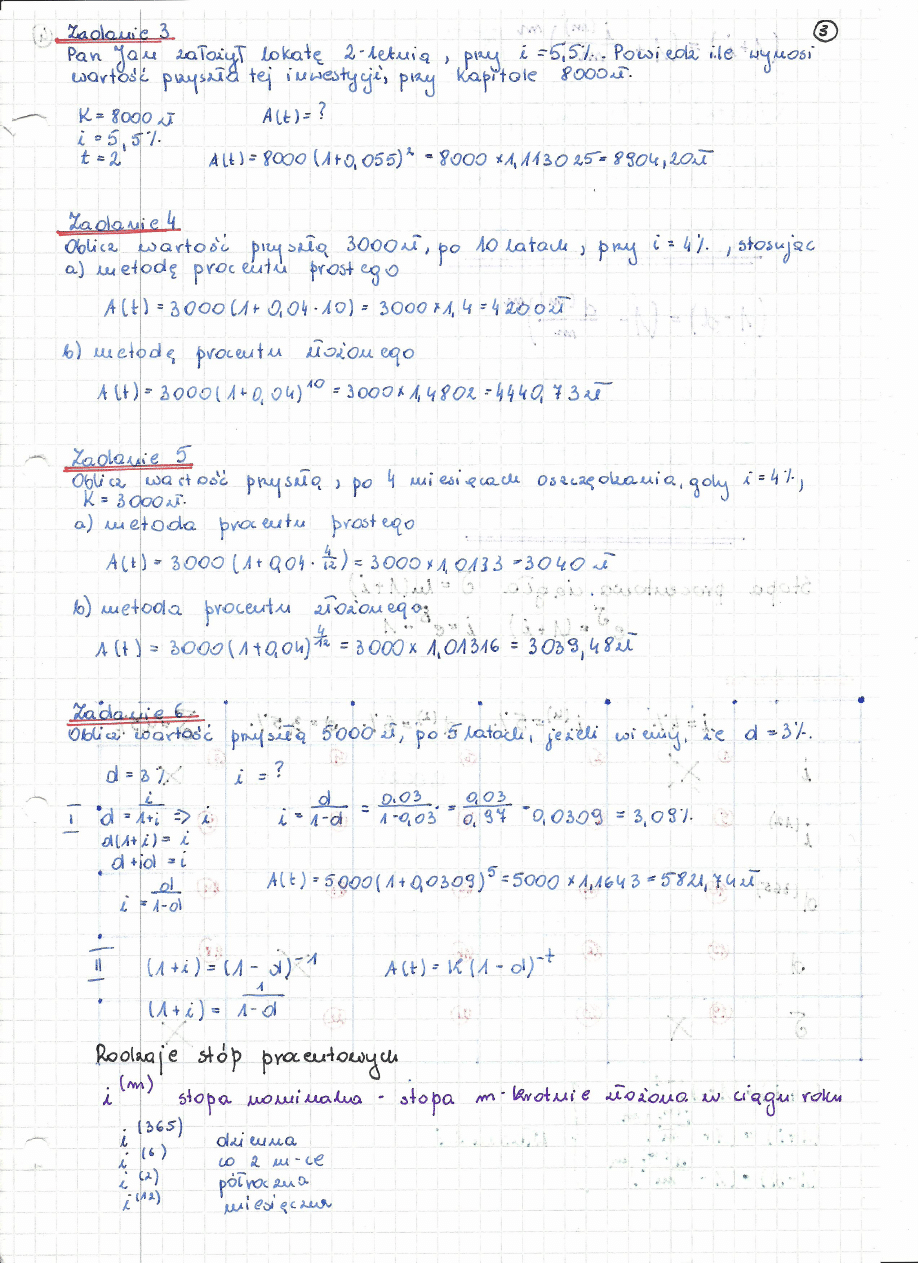 3
Zadanie 3
Pan Jan założył lokatę 2-letnią, przy i = 5,5%. Powiedz ile wynosi
wartość przyszła tej inwestycji, przy kapitole 8000 zł.
K = 8000 zł A(t) = ?
i = 5,5%
t = 2 A(t) = 8000 (1+0,055)² = 8000 × 1,113025 = 8904,20 zł
Zadanie 4
Oblicz wartość przyszłą 3000 zł, po 10 latach, przy i = 4%, stosując
a) metodę procentu prostego
A(t) = 3000 (1 + 0,04 · 10) = 3000 × 1,4 = 4200 zł
b) metodę procentu złożonego
A(t) = 3000 (1+0,04)¹⁰ = 3000 × 1,4802 = 4440,73 zł
Zadanie 5
Oblicz wartość przyszłą, po 4 miesiącach oszczędzania, gdy i = 4%,
K = 3000 zł.
a) metoda procentu prostego
A(t) = 3000 (1 + 0,04 · 4/12) = 3000 × 1,0133 = 3040 zł
b) metoda procentu złożonego
A(t) = 3000 (1+0,04)^4/12 = 3000 × 1,01316 = 3039,48 zł
Zadanie 6
Oblicz wartość przyszłą 5000 zł, po 5 latach, jeżeli wiemy, że d = 3%.
d = 3% i = ?
I d = i/1+i => i i = d/1-d = 0,03/1-0,03 = 0,03/0,97 = 0,0309 = 3,09%
d(1+i) = i
d + id = i
i = d/1-d A(t) = 5000 (1+0,0309)⁵ = 5000 × 1,1643 = 5821,74 zł
II (1+i) = (1-d)⁻¹ A(t) = K (1-d)^-t
(1+i) = 1/1-d
Rodzaje stóp procentowych
i^(m) stopa nominalna - stopa m-krotnie złożona w ciągu roku
i^(365) dzienna
i^(6) co 2 m-ce
i^(2) półroczna
i^(12) miesięczna